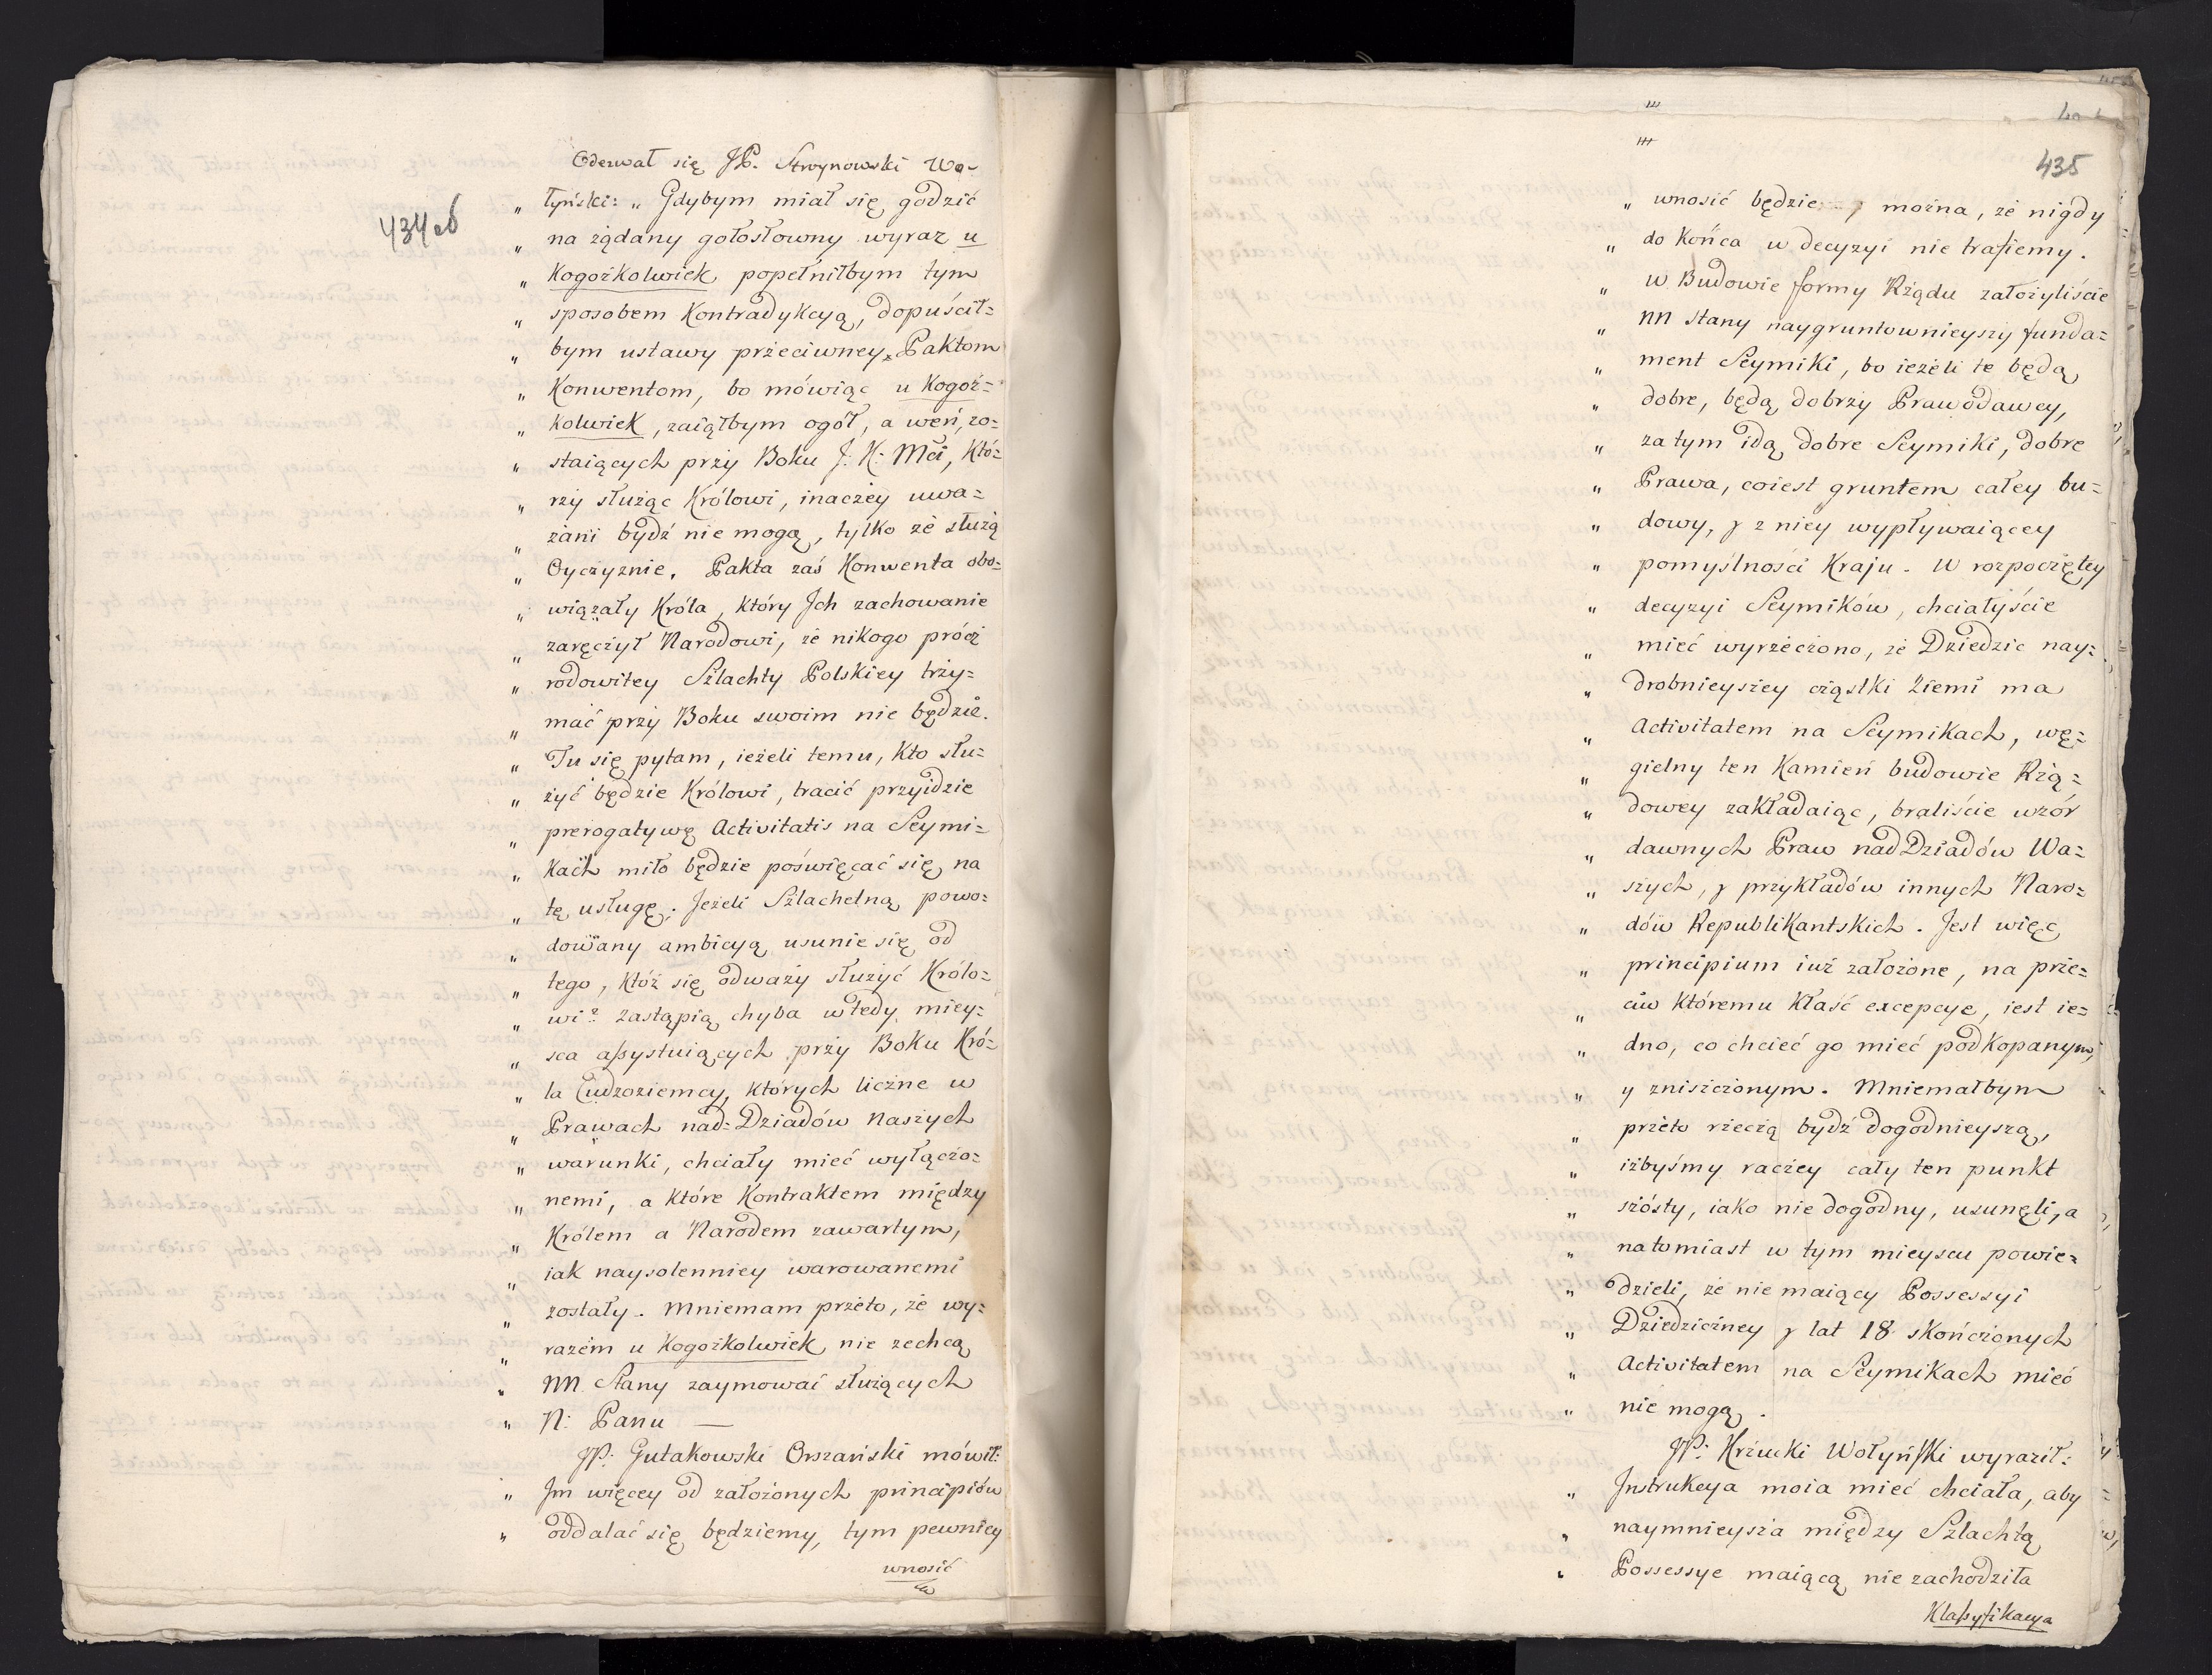 434 об
Oderwał się JP. Stroynowski Wo-
„ łyński: „ Gdybym miał się godzić
„ na żądany gołosłowny wyraz u
„ Kogożkolwiek popełniłbym tym
„ sposobem Kontradykcyą, dopuścił=
„ bym ustawy przeciwney Paktom
„ Konwentom, bo mówiąc u Kogoż=
„ kolwiek, zaiąłbym ogół, a weń, zo=
„ staiących przy Boku J: K: Mći, Któ=
„ rzy służąc Królowi, inaczey uwa=
„ żani bydź nie mogą, tylko że służą
„ Oyczyznie. Pakta zaś Konwenta obo=
„ wiązały Króla, który Jch zachowanie
„ zaręczył Narodowi, że nikogo prócz
„ rodowitey Szlachty Polskiey trzy=
„ mać przy Boku swoim nie będzie.
„ Tu się pytam, ieżeli temu, Kto słu=
„ żyć będzie Królowi, tracić przyidzie
„ prerogatywę Activitatis na Seymi=
„ kach miło będzie poświęcać się na
„ tę usługę; Jeżeli Szlachetną powo=
„ dowany ambicyą usunie się od
„ tego, któż się odważy służyć Królo=
„ wi? zastąpią chyba wtedy miey=
„ sca assystuiących przy Boku Kró=
„ la Cudzoziemcy, których liczne w
„ Prawach nad=Dziadów Naszych
„ warunki, chciały mieć wyłączo=
„ nemi, a które Kontraktem między
„ Królem a Narodem zawartym,
„ iak naysolenniey warowanemi
„ zostały. Mniemam przeto, że wy=
„ razem u Kogożkolwiek nie zechcą
„ NN. Stany zaymować służących
„ N: Panu —
JP: Gutakowski Orszański mówił:
„ Jm więcey od założonych principiów
„ oddalać się będziemy, tym pewniey
wnosić
435
„ wnosić będzie można, że nigdy
„ do Końca w decyzyi nie trafiemy.
„ w Budowie formy Rządu założyliście
„ NN Stany naygruntownieyszy funda=
„ ment Seymiki, bo ieżeli te będą
„ dobre, będą dobrzy Prawodawcy,
„ za tym idą dobre Seymiki, dobre
„ Prawa, co iest gruntem całey bu=
„ dowy, y z niey wypływaiącey
„ pomyślności Kraju. W rozpoczętey
„ decyzyi Seymików, chciałyście
„ mieć wyrzeczono, że Dziedzic nay=
„ drobnieyszey cząstki Ziemi ma
„ Activitatem na Seymikach, wę=
„ gielny ten Kamień budowie Rzą=
„ dowey zakładaiąc, braliście wzór
„ dawnych Praw nad Dziadów Wa=
„ szych, y przykładów innych Naro=
„ dów Republikantskich. Jest więc
„ principium iuż założone, na prze=
„ ciw któremu kłaść excepcye, iest ie=
„ dno, co chcieć go mieć podkopanym,
„ y zniszczonym. Mniemałbym
„ przeto rzeczą bydź dogodnieyszą,
„ iżbyśmy raczey cały ten punkt
„ szósty, iako nie dogodny, usunęli, a
„ natomiast w tym mieyscu powie=
„ dzieli, że nie maiący Possessyi
„ Dziedziczney y lat 18 skończonych
„ Activitatem na Seymikach mieć
„ nie mogą.
JP: Krzucki Wołyński wyraził:
„ Jnstrukcya moia mieć chciała, aby
„ naymnieysza między Szlachtą
„ Possessye maiącą nie zachodziła
Klassyfikacya